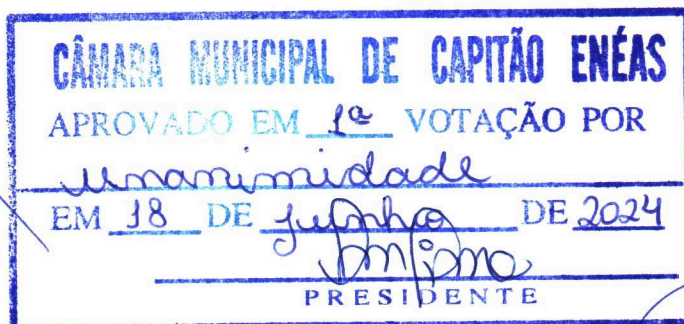 CÂMARA MUNICIPAL DE CAPITÃO ENÉAS
APROVADO EM 1ª VOTAÇÃO POR
unanimidade
EM 18 DE junho DE 2024
PRESIDENTE